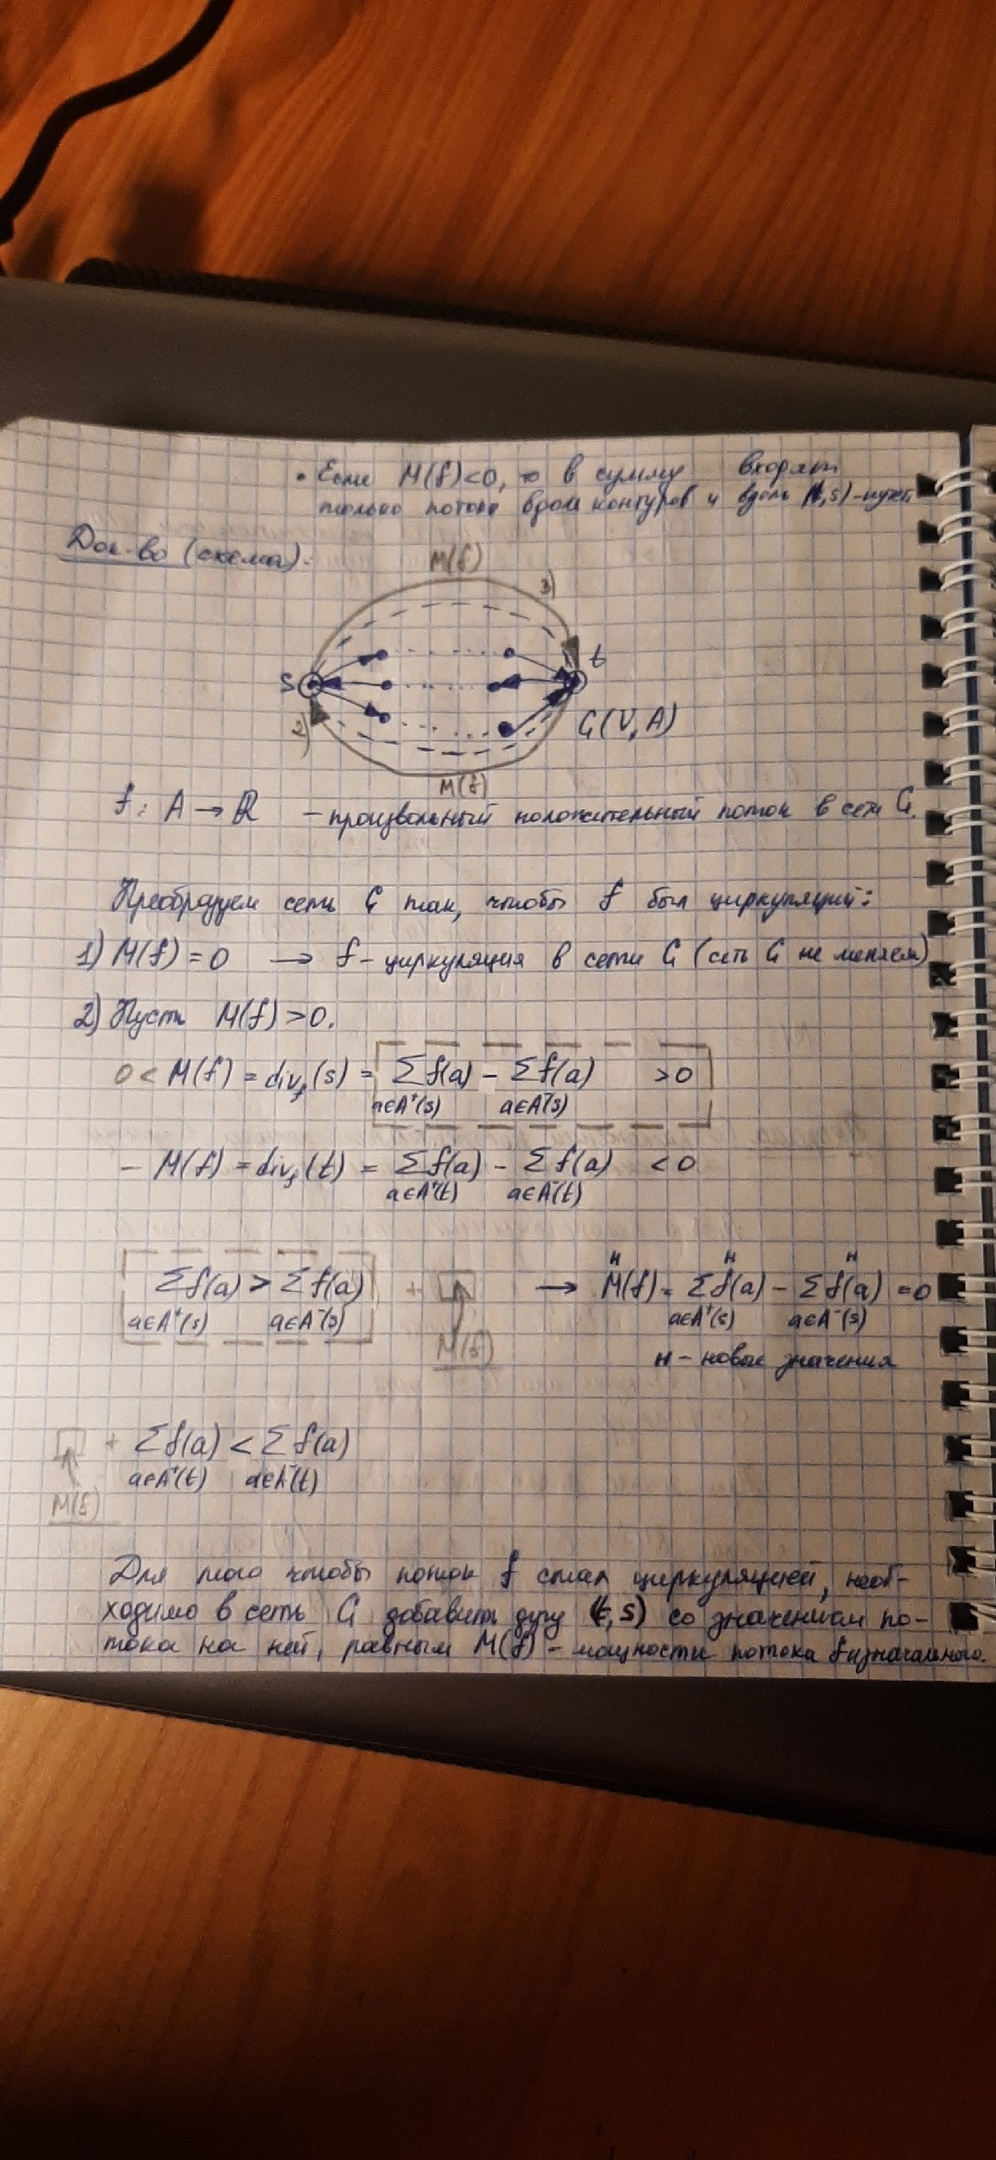 • Если M(f)<0, то в сумму входят
только потоки вдоль контуров и вдоль (t,s)-путей
Док-во (схема):
M(f)
3)
s
t
2)
G(V,A)
M(f)
f: A → ℝ – произвольный положительный поток в сети G.
Преобразуем сеть G так, чтобы f был циркуляцией:
1) M(f) = 0 → f – циркуляция в сети G (сеть G не меняем)
2) Пусть M(f) > 0.
0 < M(f) = div_f(s) = Σf(a) – Σf(a) >0
a∈A⁺(s) a∈A⁻(s)
– M(f) = div_f(t) = Σf(a) – Σf(a) < 0
a∈A⁺(t) a∈A⁻(t)
Σf(a) > Σf(a) + → M^н(f) = Σf^н(a) – Σf^н(a) = 0
a∈A⁺(s) a∈A⁻(s) M(f) a∈A⁺(s) a∈A⁻(s)
н – новые значения
+ Σf(a) < Σf(a)
M(f) a∈A⁺(t) a∈A⁻(t)
Для того чтобы поток f стал циркуляцией, необ-
ходимо в сеть G добавить дугу (t,s) со значением по-
тока на ней, равным M(f) – мощности потока f изначального.